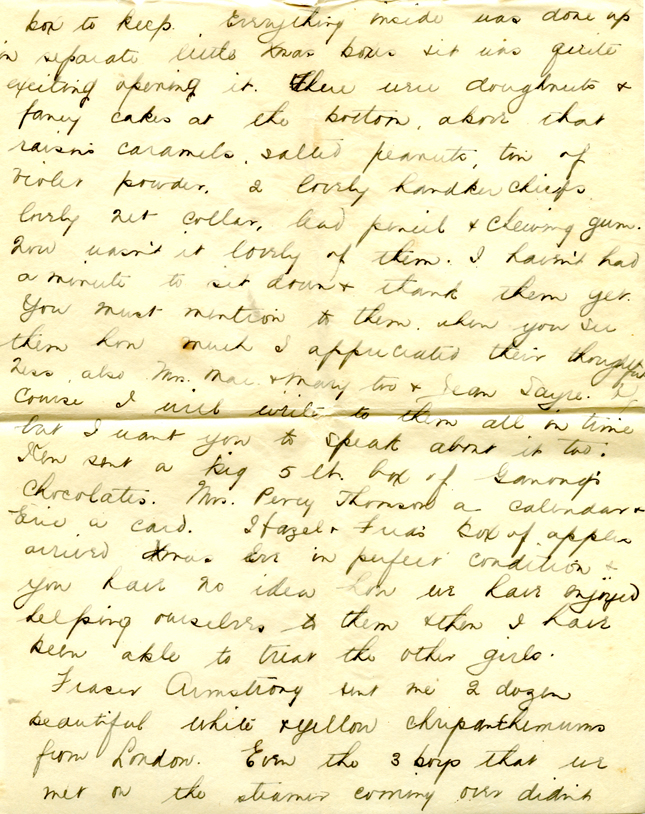 box to keep. Everything inside was done up
in separate little Xmas boxes & it was quite
exciting opening it. There were doughnuts &
fancy cakes at the bottom, above that
raisins caramels, salted peanuts, tin of
violet powder, 2 lovely handkerchiefs
lovely net collar, lead pencil & chewing gum.
Now wasn't it lovely of them. I haven't had
a minute to sit down & thank them yet.
You must mention to them when you see
them how much I appreciated their thoughtful
ness, also Mrs. Mac. & Mary too & Jean Sayre. Of
course I will write to them all in time
but I want you to speak about it too.
Ken sent a big 5 lb. box of Ganong's
chocolates. Mrs. Percy Thomson a calendar &
Eric a card. Hazel & Fred's box of apples
arrived Xmas Eve in perfect condition &
you have no idea how we have enjoyed
helping ourselves to them & then I have
been able to treat the other girls.
Fraser Armstrong sent me 2 dozen
beautiful white & yellow chrysanthemums
from London. Even the 3 boys that we
met on the steamer coming over didn't